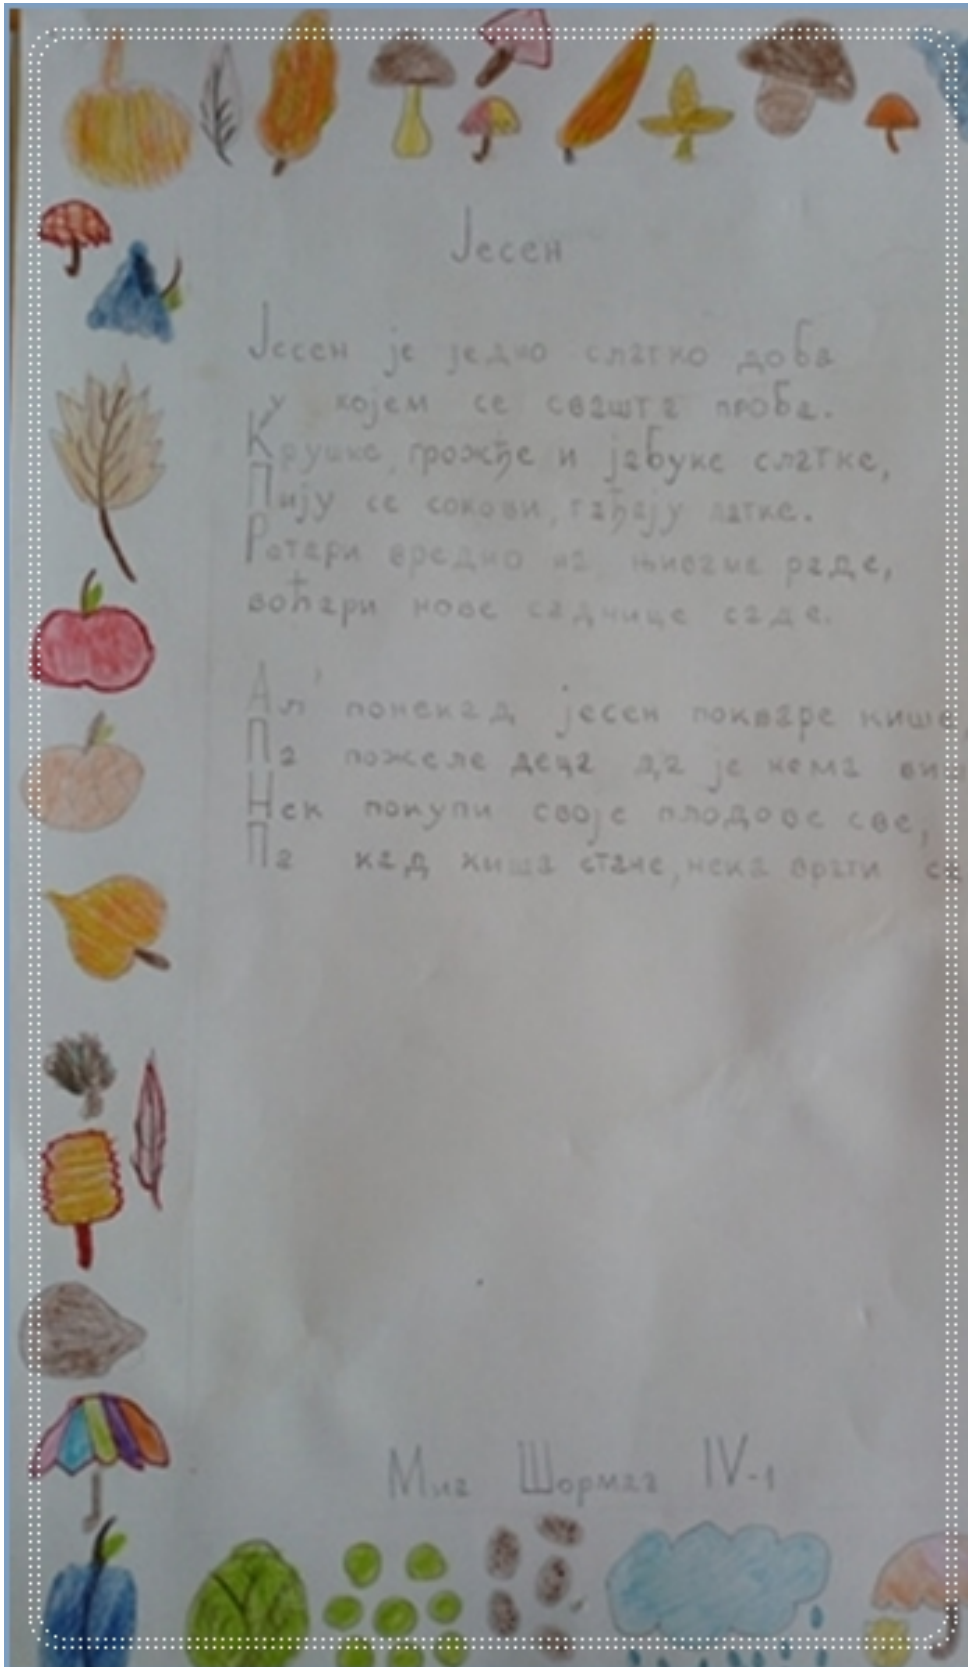 Јесен
Јесен је једно слатко доба
у којем се свашта проба.
Крушке, грожђе и јабуке слатке,
Пију се сокови, гађају патке.
Ратари вредно на њивама раде,
воћари нове саднице саде.
Ал' понекад јесен покваре кише
Па пожеле деца да је нема ви
Нек покупи своје плодове све,
Па кад киша стане, нека врати се
Миа Шормаз IV-1